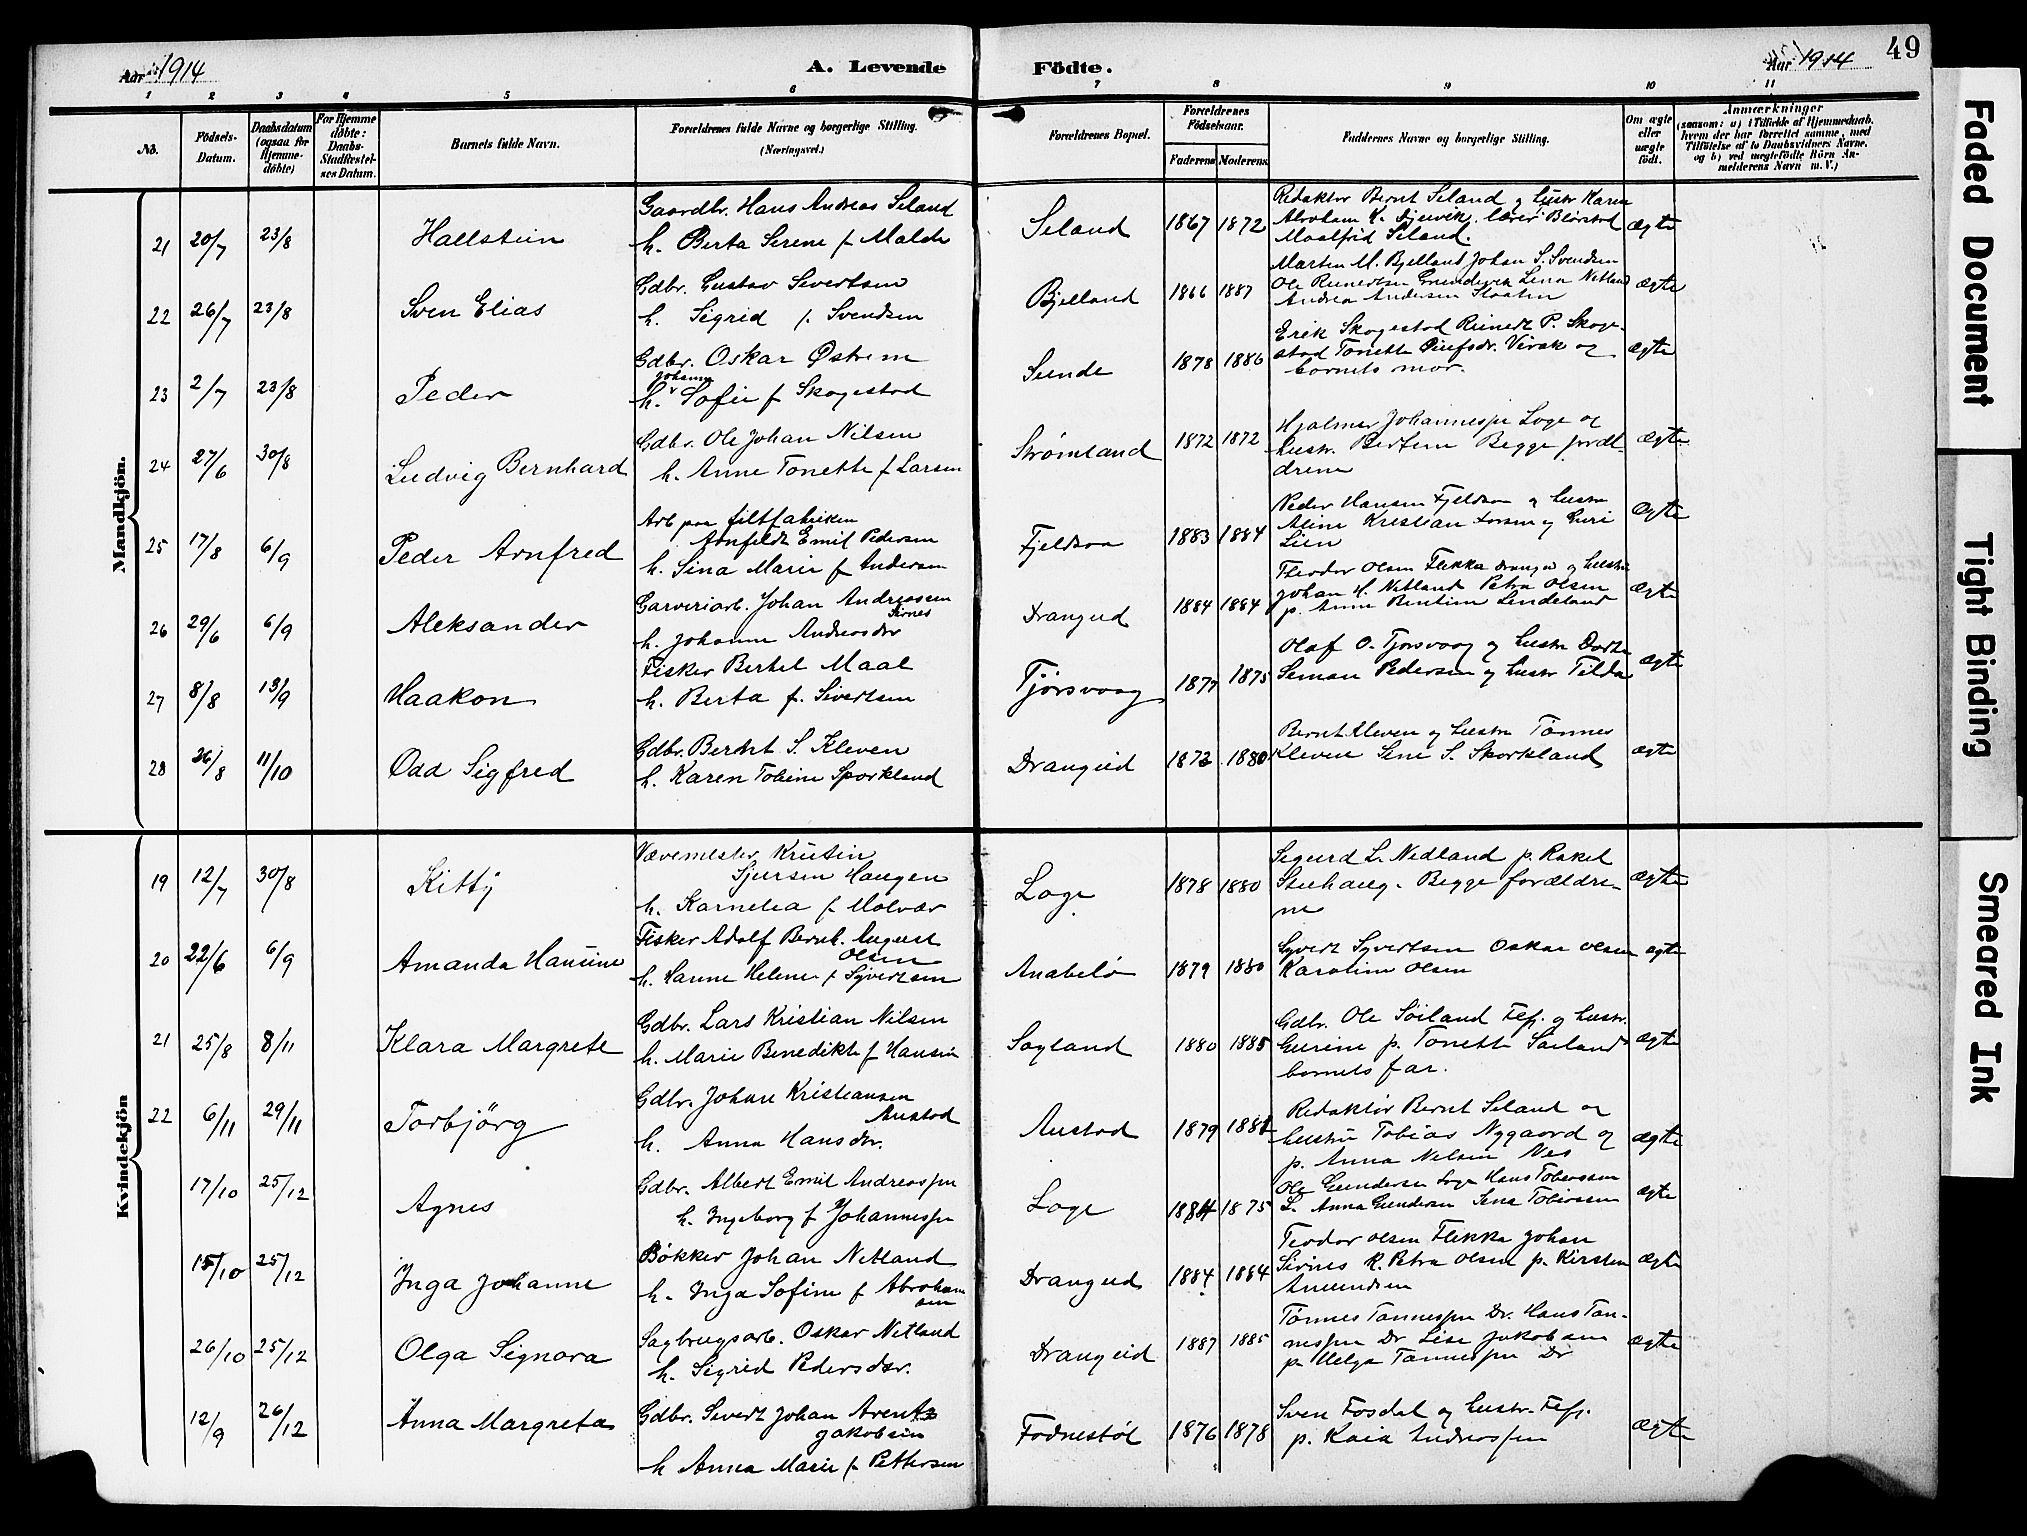 Aar 1914
A. Levende Födte.
Aar 1914
49
1 2 3 4 5 6 7 8 9 10 11
No.
Födsels-Datum.
Daabsdatum (ogsaa for Hjemmedöbte)
For Hjemmedöbte: Daabs-Stadfæstelses Datum.
Barnets fulde Navn.
Forældrenes fulde Navne og borgerlige Stilling. (Næringsvei.)
Forældrenes Bopæl.
Forældrenes Födselsaar.
Faderens
Moderens
Faddernes Navne og borgerlige Stilling.
Om ægte eller uægte födt.
Anmærkninger
(saasom: a) i Tilfælde af Hjemmedaab, hvem der har forrettet samme, med Tilföielse af to Daabsvidners Navne, og b) ved uægtefödte Börn Anmelderens Navn m. V.)
Mandkjön.
21 20/7 23/8 Hallstein
Gaardbr. Hans Andreas Seland
h. Berta Serene f Malde
Seland 1867 1872
Redaktør Bernt Seland og hustr Karen
Abraham K. lærer
Maalfrid Seland.
ægte
22 26/7 23/8 Sven Elias
Gdbr. Gustav Sivertsen
h. Sigrid f. Svendsen
Bjelland 1866 1887
Marten M. Bjelland Johan S. Svendsen
Ole Reinertsen Lena Netland
Andrea Andersen
ægte
23 2/7 23/8 Peder
Gdbr. Oskar Østrem
h. Johanne Sofie f Skogestad
Sunde 1878 1886
Erik Skogestad Reinert P. Skoge-
stad Tonette Virak og
barnets mor.
ægte
24 27/6 30/8 Ludvig Bernhard
Gdbr. Ole Johan Nilsen
h. Anne Tonette f Larsen
Strømland 1872 1872
Hjalmer Johannessen Loge og
hustr. Bertine Begge foræl-
drene
ægte
25 17/8 6/9 Peder Arnfred
Arb paa filtfabriken
Arnfeldt Emil Pedersen
h. Sina Marie f Andersen
Fjeldsaa 1883 1884
Peder Hansen Fjeldsaa og hustru
Aline Kristian Larsen og Guri
Lien
ægte
26 29/6 6/9 Aleksander
Garveriarb. Johan Andreassen
Sirnes
h. Johanne Andreasdtr
Drangeid 1884 1884
Theodor Olsen Flikka Drange og hustru
Johan H. Netland Petra Olsen
p. Anne Bentine Lindeland
ægte
27 8/8 13/9 Haakon
Fisker Bertel Maal
h. Berta f. Sivertsen
Tjørsvaag 1877 1875
Olaf O. Tjørsvaag og hustr Dorte
Simon Pedersen og hustr Tilda
ægte
28 26/8 11/10 Odd Sigfred
Gdbr. Berent S. Kleven
h. Karen Tobine Sporkland
Drangeid 1872 1880
Bernt Kleven og hustru Tønnes
Kleven Sine S. Sporkland
ægte
Kvindekjön
19 12/7 30/8 Kitty
Vævemester Kristen
Sjursen Haugen
h. Karnelia f Molvær
Loge 1878 1880
Sigurd L. Nedland p. Rakel
Stenhaug. Begge forældre-
ne
ægte
20 22/6 6/9 Amanda Hansine
Fisker Adolf Bernh. August
Olsen
h. Hanne Helene f Syvertsen
Anabelø 1879 1880
Syvert Syvertsen Oskar Olsen
Karoline Olsen
ægte
21 25/8 8/11 Klara Margrete
Gdbr. Lars Kristian Nilsen
h. Marie Benedikte f Hansen
Søyland 1880 1885
Gdbr. Ole Søiland Fef. og hustr.
Gurine p. Tonette Søiland
barnets far.
ægte
22 6/11 29/11 Torbjörg
Gdbr. Johan Kristiansen
Austad
h. Anna Hansdtr.
Austad 1879 1881
Redaktør Bernt Seland og
hustru Tobias Nygaard og
p. Anna Nilsen Nes
ægte
17/10 25/12 Agnes
Gdbr. Albert Emil Andreassen
h. Ingeborg f Johannessen
Loge 1884 1875
Ole Gundersen Loge Hans Tobiassen
L. Anna Gundersen Sena Tobiassen
ægte
15/10 25/12 Inga Johanne
Bøkker Johan Netland
h. Inga Sofine f Abraham
sen
Drangeid 1884 1884
Teodor Olsen Flikka Johan
Sirnes K. Petra Olsen p. Kirsten
Amundsen
ægte
26/10 25/12 Olga Signora
Sagbrugsarb. Oskar Netland
h. Sigrid Pedersdtr.
Drangeid 1887 1885
Tønnes Tønnessen Dr. Hans Tøn-
nessen Dr Lise Jakobsen
p. Helga Tønnessen Dr
ægte
12/9 26/12 Anna Margreta
Gdbr. Sivert Johan Arentz
Jakobsen
h Anna Marie f. Pettersen
Fodnestøl 1876 1878
Sven Fosdal og hustr. Fef.
p. Kaia Andreassen
ægte
Faded Document
Tight Binding
Smeared Ink